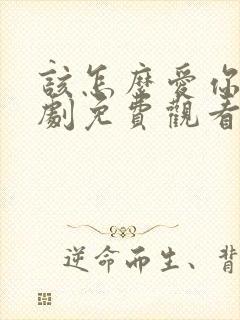 該怎麼愛你
劇免費觀看
逆命而生、背